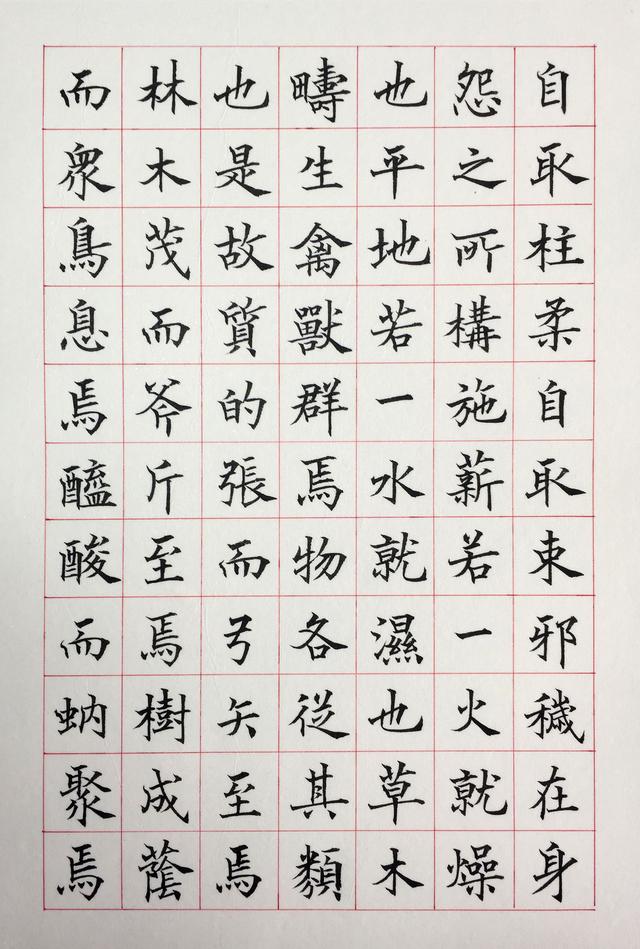 自取柱柔自取束邪穢在身
怨之所構施薪若一火就燥
也平地若一水就濕也草木
疇生禽獸群焉物各從其類
也是故質的張而弓矢至焉
林木茂而斧斤至焉樹成蔭
而衆鳥息焉醯酸而蚋聚焉